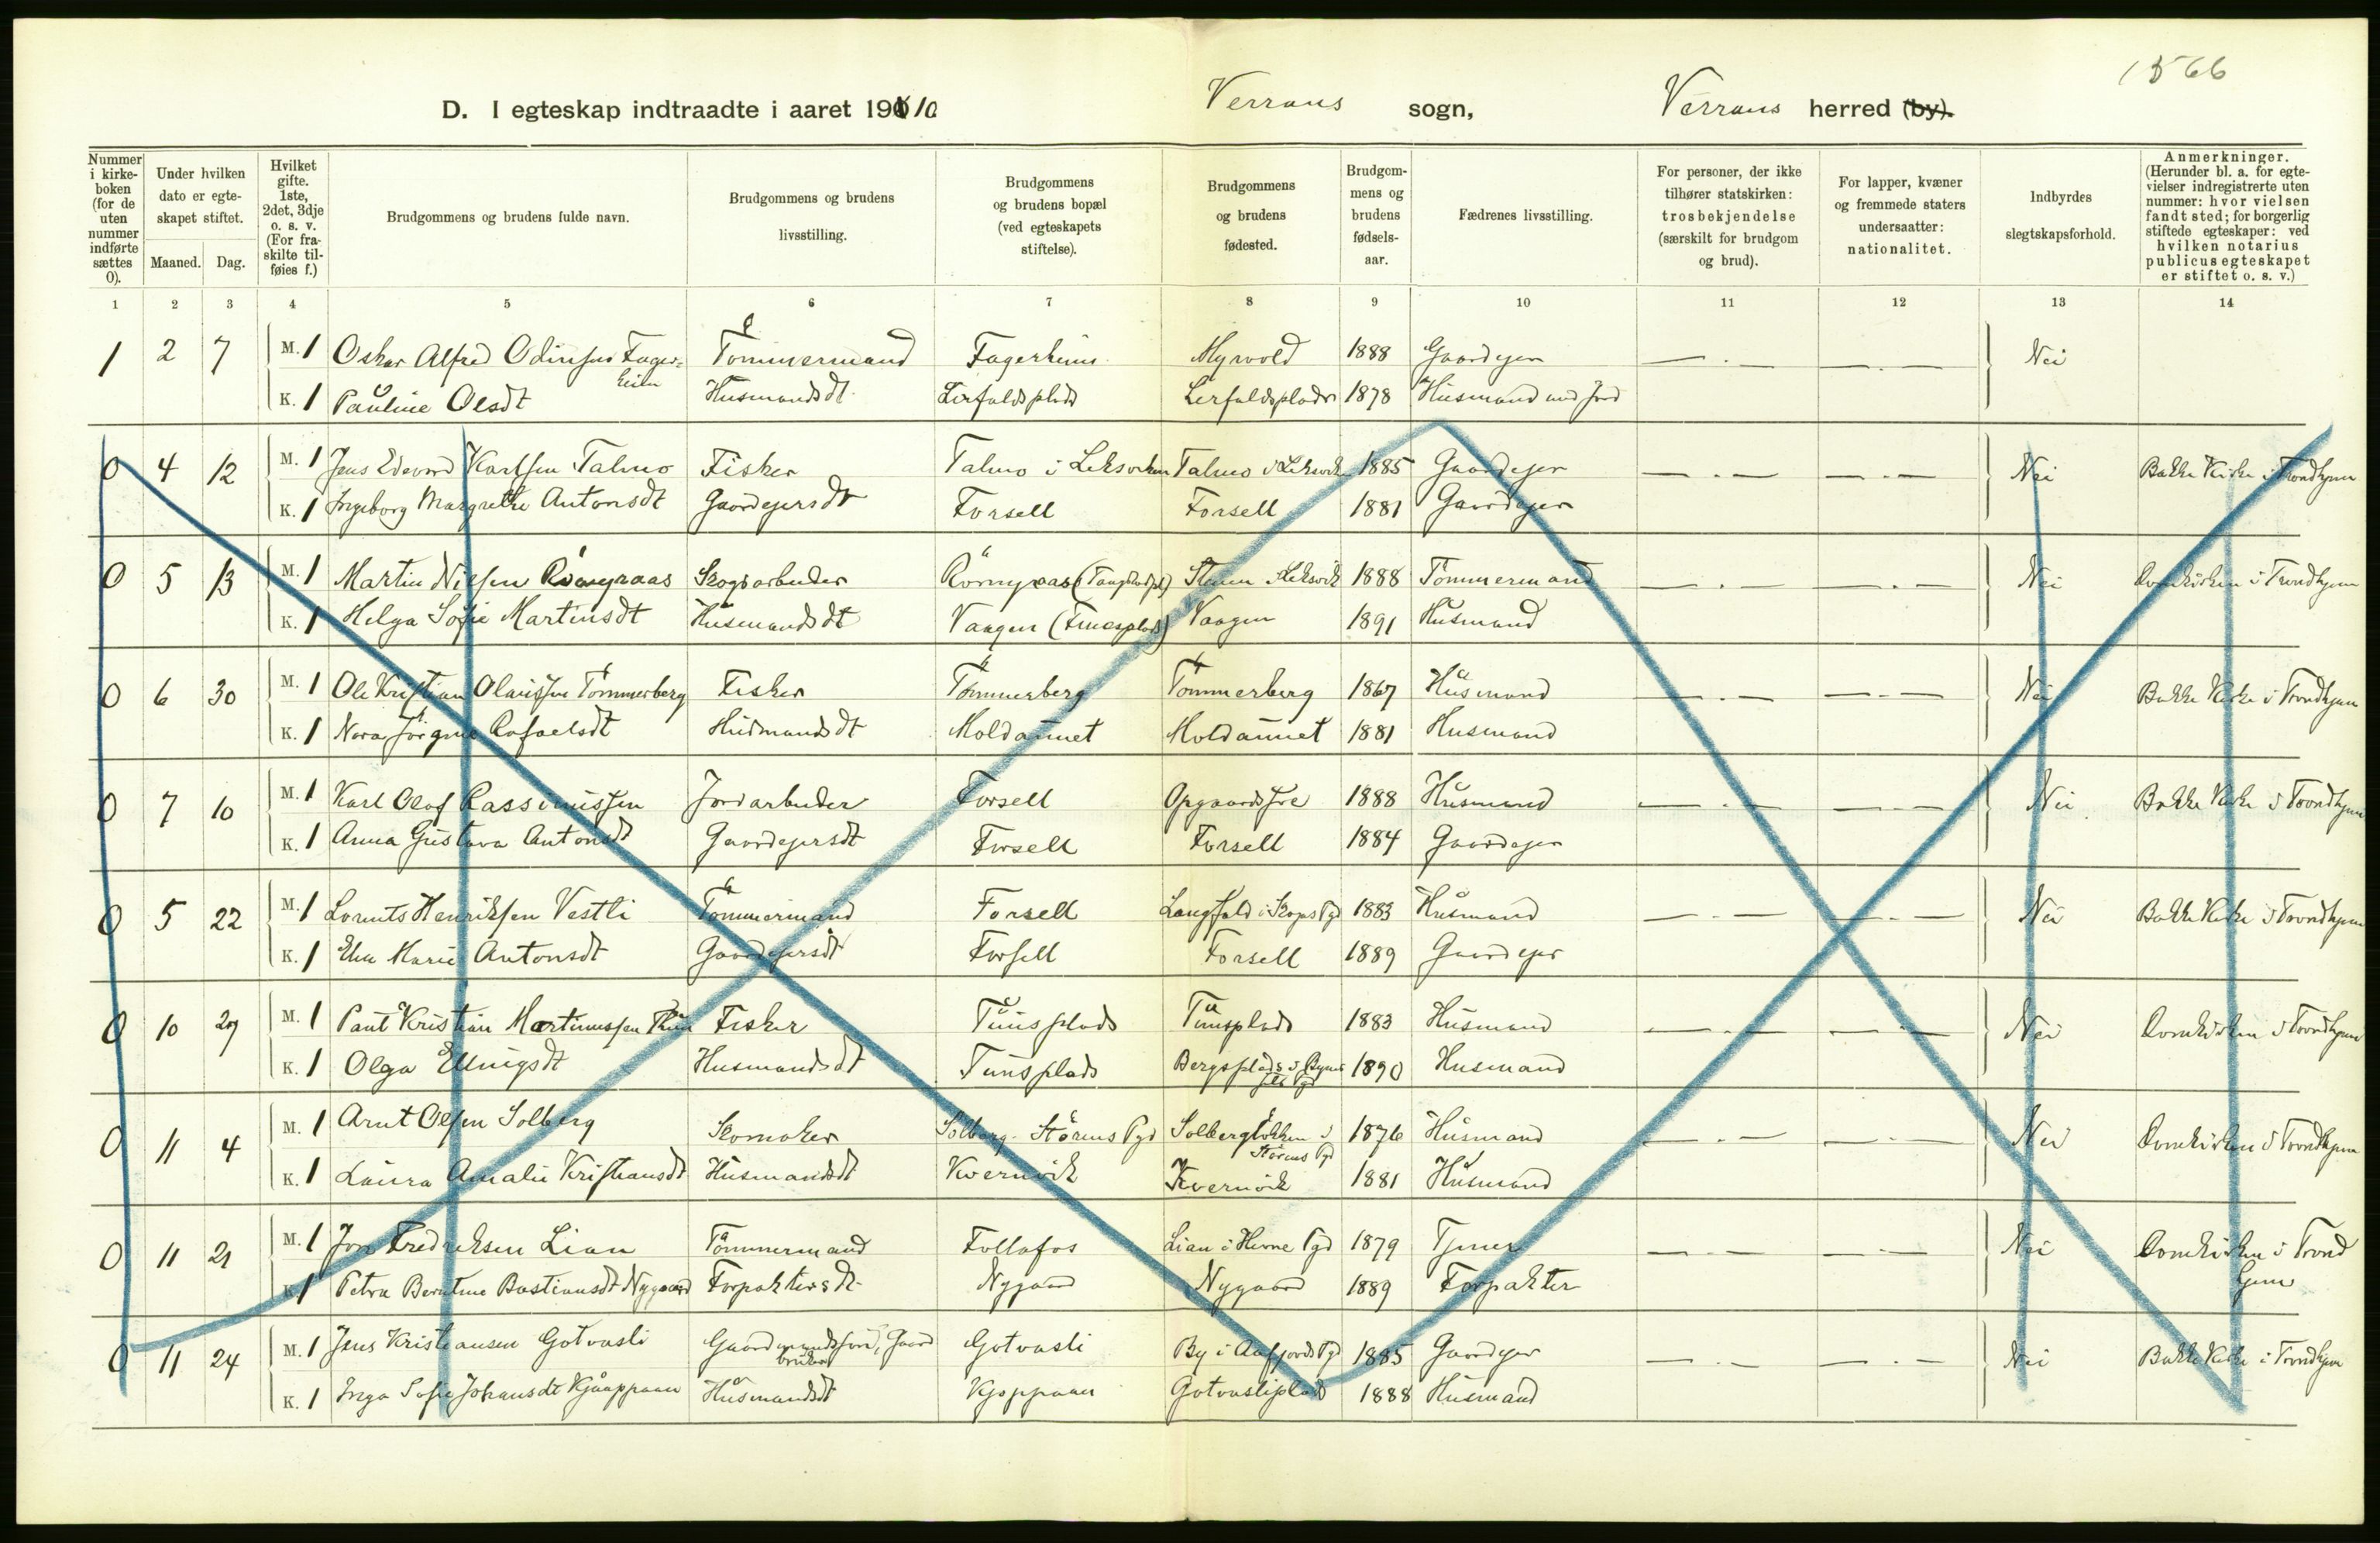 1566
D. I egteskap indtraadte i aaret 1910 Verrans sogn, Verrans herred (by).
Nummer i kirkeboken (for de uten nummer indførte sættes 0).
Under hvilken dato er egteskapet stiftet.
Maaned. Dag.
Hvilket gifte. 1ste, 2det, 3dje o. s. v. (For fraskilte tilføies f.)
Brudgommens og brudens fulde navn.
Brudgommens og brudens livsstilling.
Brudgommens og brudens bopæl (ved egteskapets stiftelse).
Brudgommens og brudens fødested.
Brudgommens og brudens fødselsaar.
Fædrenes livsstilling.
For personer, der ikke tilhører statskirken: trosbekjendelse (særskilt for brudgom og brud).
For lapper, kvæner og fremmede staters undersaatter: nationalitet.
Indbyrdes slegtskapsforhold.
Anmerkninger. (Herunder bl. a. for egtevielser indregistrerte uten nummer: hvor vielsen fandt sted; for borgerlig stiftede egteskaper: ved hvilken notarius publicus egteskapet er stiftet o. s. v.)
1 2 3 4 5 6 7 8 9 10 11 12 13 14
1 2 7 M. 1 Oskar Alfred Odinsen Fagerheim Tömmermand Fagerheim Myrvold 1888 Gaardejer — . — — . — Nei
K. 1 Pauline Olsdt Husmandsdt Lerfaldsplads Lerfaldsplads 1878 Husmand med Jord
0 4 12 M. 1 Jens Edevard Karlsen Talmo Fisker Talmo i Leksviken Talmo i Leksvik 1885 Gaardejer — . — — . — Nei Bakke Kirke i Trondhjem
K. 1 Ingeborg Margrethe Antonsdt Gaardejersdt Forsell Forsell 1881 Gaardejer
0 5 13 M. 1 Martin Nilsen Römgraas Skogsarbeider Römgraas 1888 Tömmermand — . — — . — Nei Domkirken i Trondhjem
K. 1 Helga Sofie Martinsdt Husmandsdt Vaagen Vaagen 1891 Husmand
0 6 30 M. 1 Ole Kristian Olaussen Tömmerberg Fisker Tömmerberg Tömmerberg 1867 Husmand — . — — . — Nei Bakke Kirke i Trondhjem
K. 1 Nora Jörgine Rafaelsdt Husmandsdt Moldaunet Moldaunet 1881 Husmand
0 7 10 M. 1 Karl Olaf Rassmussen Jordarbeider Forsell 1888 Husmand — . — — . — Nei Bakke Kirke i Trondhjem
K. 1 Anna Gustava Antonsdt Gaardejersdt Forsell Forsell 1884 Gaardejer
0 5 22 M. 1 Lorents Henriksen Vestli Tömmermand Forsell 1883 Husmand — . — — . — Nei Bakke Kirke i Trondhjem
K. 1 Marie Antonsdt Gaardejersdt Forsell Forsell 1889 Gaardejer
0 10 29 M. 1 Paul Kristian Martinussen Thun Fisker Tunsplads Tunsplads 1883 Husmand — . — — . — Nei Domkirken i Trondhjem
K. 1 Olga Ellingsdt Husmandsdt Tunsplads Bergsplads 1890 Husmand
0 11 4 M. 1 Arnt Olsen Solberg Skomaker Solberg Störens Pgd Solbergløkken i Störens Pgd 1876 Husmand — . — — . — Nei Domkirken i Trondhjem
K. 1 Laura Amalie Kristiansdt Husmandsdt Kvernvik Kvernvik 1881 Husmand
0 11 21 M. 1 Jon Fredriksen Lian Tömmermand Follafos Lian i Hevne Pgd 1879 Tjener — . — — . — Nei Domkirken i Trondhjem
K. 1 Petra Berntine Bastiansdt Nygaard Forpaktersdt Nygaard Nygaard 1889 Forpakter
0 11 24 M. 1 Jens Kristiansen Gotvasli Gaardmandsson, Gaardbruker Gotvasli By i Aafjords Pgd 1885 Gaardejer — . — — . — Nei Bakke Kirke i Trondhjem
K. 1 Inga Sofie Johansdt Kjöappaan Husmandsdt Gotvasliplads 1888 Husmand